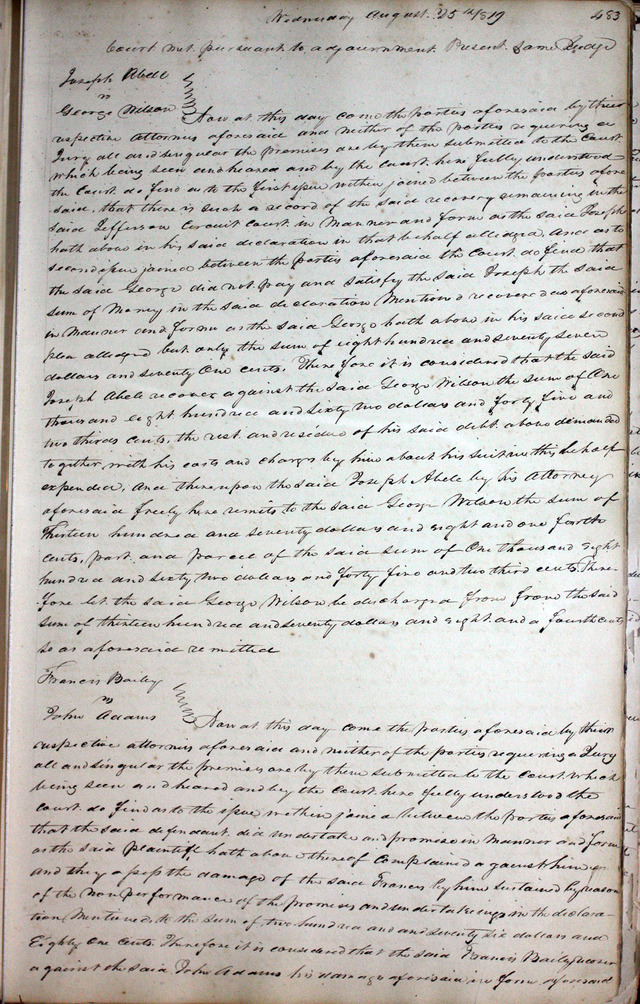 Wednesday August 25th 1819 483
Court met pursuant to adjournment Present Same Judge
Joseph Abele
vs
George Wilson Now at this day come the parties aforesaid by their
respective Attornies aforesaid and neither of the parties requering a
Jury all and singular the premises are by them submitted to the Court
which being seen and heared and by the court here fully understood
the Court do find as to the first issue within joined between the parties afore
said, that there is such a record of the said recovery remaining in the
said Jefferson Circuit Court in Manner and form as the said Joseph
hath above in his said declaration in that behalf alledged. And as to
second issue joined between the parties aforesaid the Court do find that
the said George did not pay and satisfy the said Joseph the said
sum of Money in the said declaration Mentioned recovered as aforesaid
in Manner and form as the said George hath above in his said second
plea alledged but only the sum of eight hundred and seventy seven
dollars and seventy One cents. Therefore it is considered that the said
Joseph Abele recover against the said George Wilson the sum of One
thousand eight hundred and sixty two dollars and forty five and
two thirds cents, the rest and residue of his said debt above demanded
together with his costs and charges by him about his suit in this behalf
expended, and thereupon the said Joseph Abele by his Attorney
aforesaid freely here remits to the said George Wilson the sum of
Thirteen hundred and seventy dollars and eight and one forth
cents, part and parcel of the said sum of One thousand eight
hundred and sixty two dollars and forty five and two third cents. There-
fore let the said George Wilson be discharged from from the said
sum of thirteen hundred and seventy dollars and eight and a fourth cents
so as aforesaid remitted
Francis Baily
vs
John Adams Now at this day come the parties aforesaid by their
respective attornies aforesaid and neither of the parties requering a Jury
all and singular the premises are by them submitted to the Court which
being seen and heared and by the Court here fully understood the
court do find as to the issue within joined between the parties aforesaid
that the said defendant did undertake and promise in Manner and form
as the said plaintiff hath above thereof complained against him
and they assess the damage of the said Francis by him sustained by reason
of the non performance of the promises and undertakings in the declara-
tion Mentioned to the sum of two hundred and and seventy six dollars and
Eighty One cents. Therefore it is considered that the said Francis Baily recover
against the said John Adams his damage aforesaid in form aforesaid